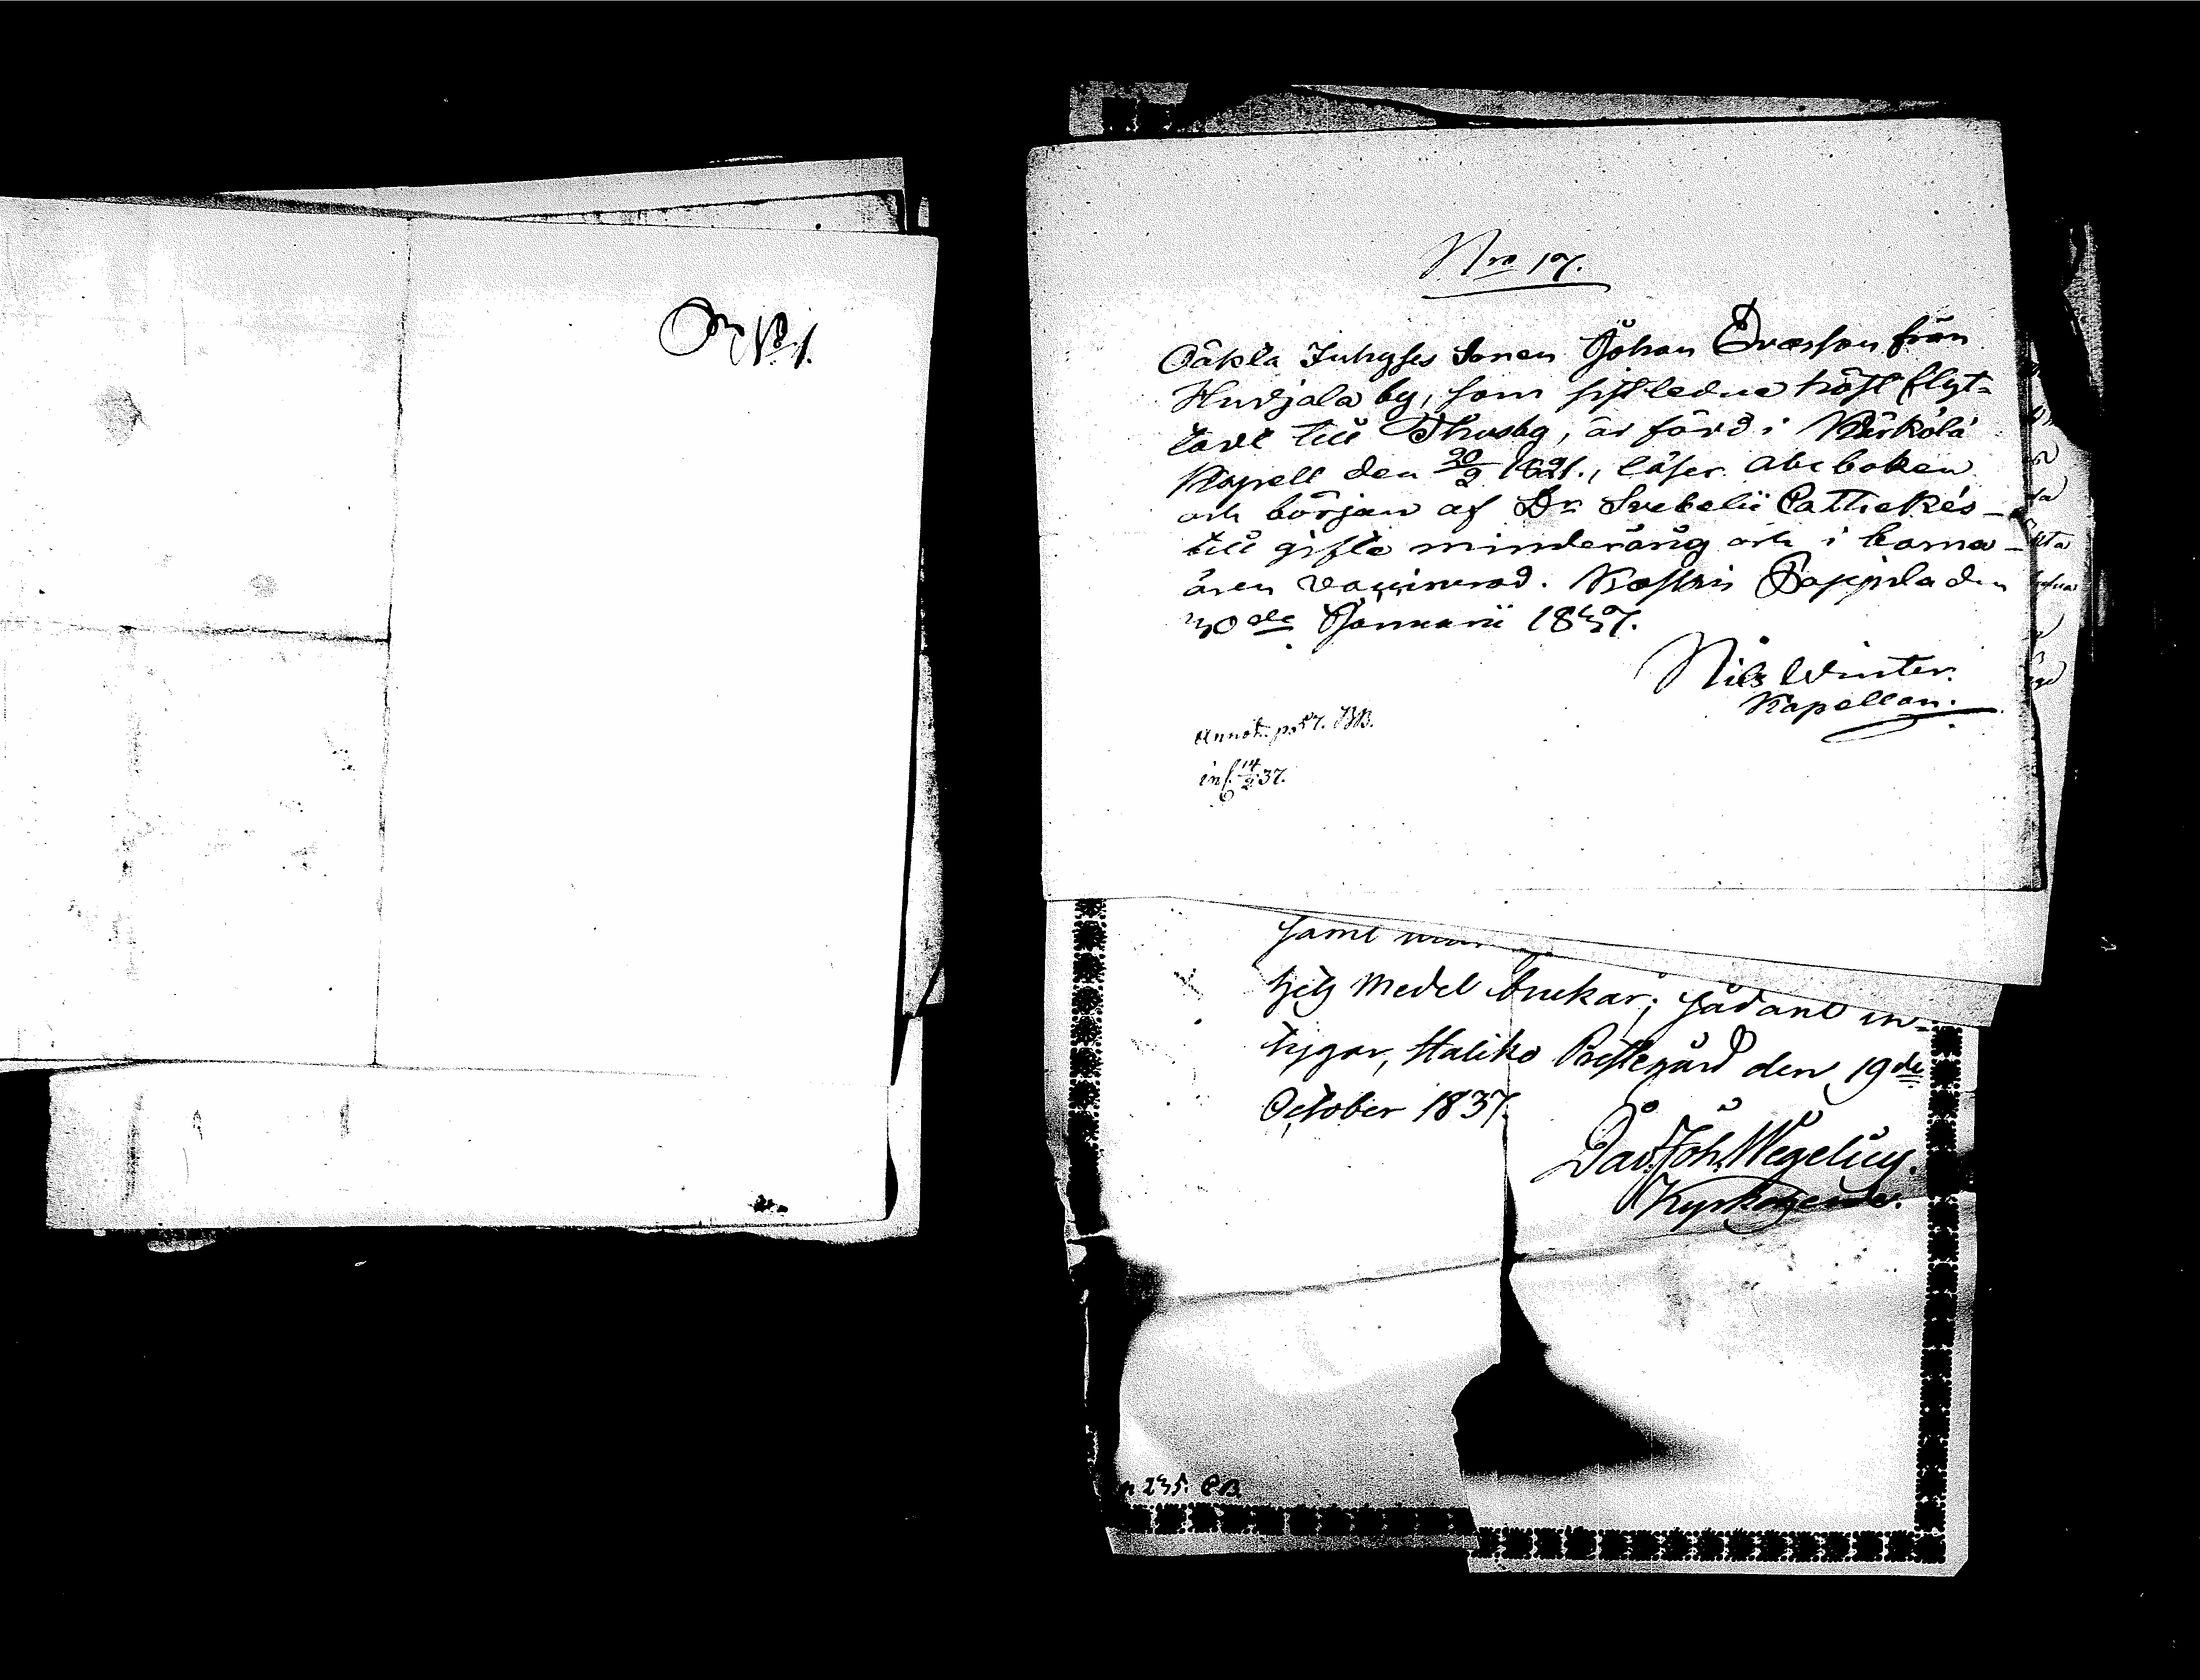 Nro 17.
Oäkta Inhyses Sonen Johan Evasson från
Hurjala by, som sistledne höst flyt-
tadt till Thusby, är född i Kärkölä
Kapell den 20/2 1821., läser abcboken
och början af Dr. Svebelii Cathekes
till gifte minderårig och i barna-
åren vaccinerad. Pappila den
30de Januarii 1837.
Nils Winter.
Kapellan.
Annot. p. 57. IB.
inf. 14/2 37.
samt
hets Medel brukar; sådant in-
tygar, Haliko Prestegård den 19de
October 1837.
Dav. Joh. Wegelius.
Kyrkoherde.
235. CB.